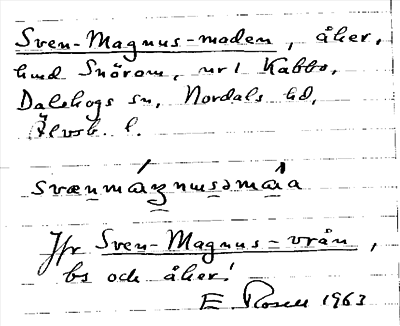 Sven-Magnus-maden, åker,
hmd Snörom, nr 1 Kabbo,
Dalskogs sn, Nordals hd,
Älvsb. l.
svænmáŋnusəmàa
Jfr Sven-Magnus-vrån,
bs och åker!
E Rosell 1963